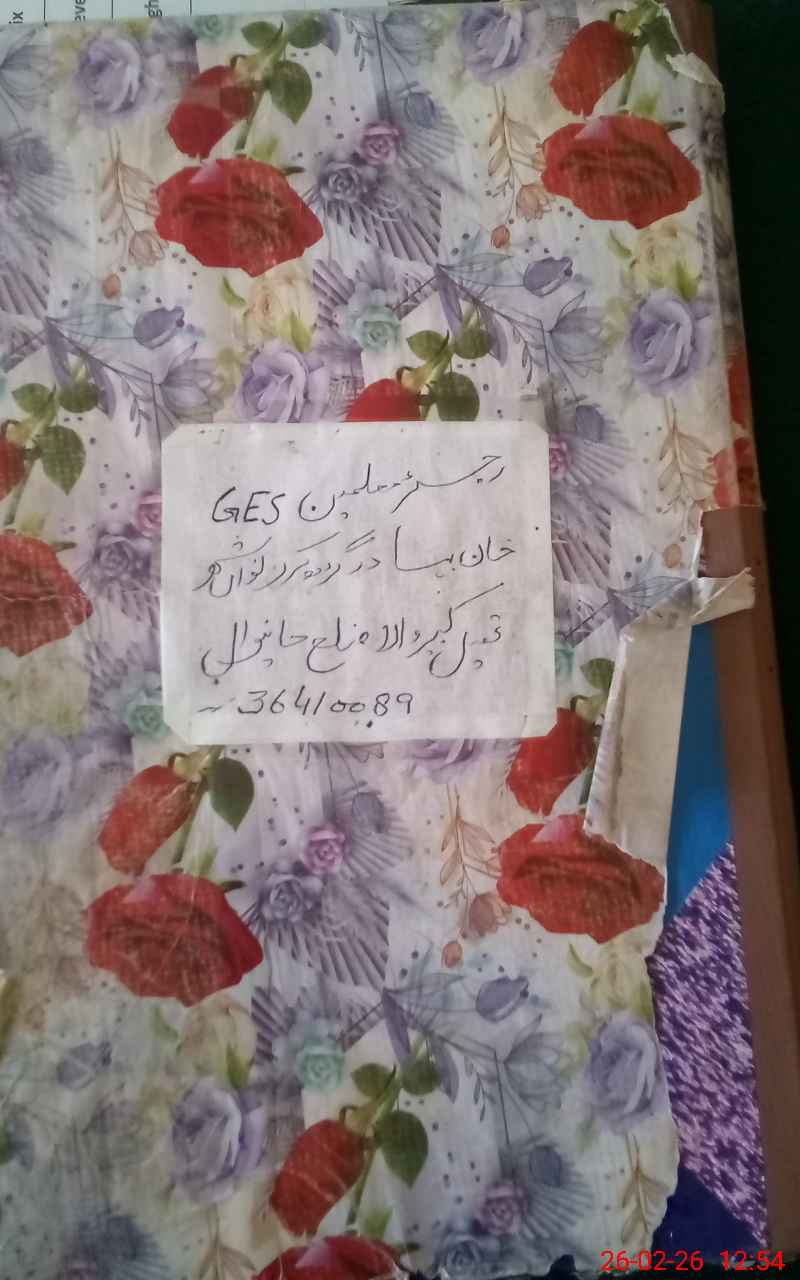 رجسٹر معلمین GES
خان بیلا در گردہ مرکز نواں شہر
تحصیل کبیروالا ضلع خانیوال
36410089
26-02-26 12:54